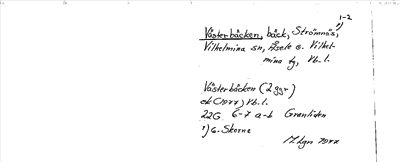 1-2
Västerbäcken, bäck, Strömnäs, 1)
Vilhelmina sn, Åsele o. Vilhel-
mina tg, Vb. l.
Västerbäcken (2 ggr)
ek (1977) Vb. l.
22G 6-7 a-b Granliden
1) G. Skorne
M. Lgn 1977